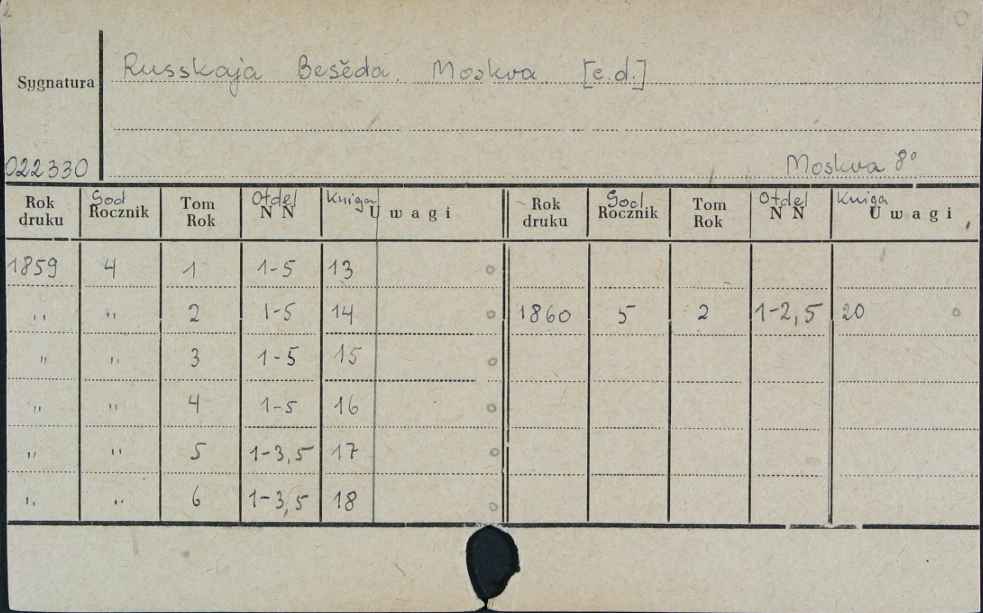 2
Russkaja Besěda. Moskva. [c.d.]
Sygnatura
022330
Moskva 8°
Rok druku God Rocznik Tom Rok Otdel N N Kniga Uwagi Rok druku God Rocznik Tom Rok Otdel N N Kniga Uwagi
1859 4 1 1-5 13
,, ,, 2 1-5 14 1860 5 2 1-2,5 20
,, ,, 3 1-5 15
,, ,, 4 1-5 16
,, ,, 5 1-3,5 17
,, ,, 6 1-3,5 18